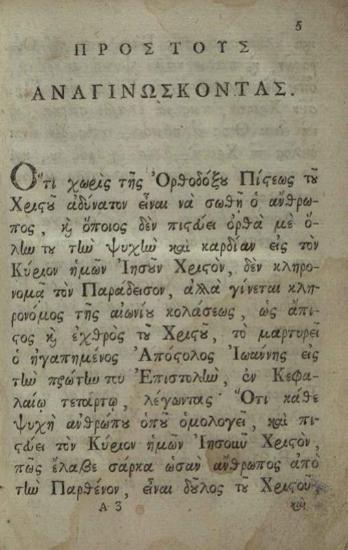 5
ΠΡΟΣ ΤΟΥΣ
ΑΝΑΓΙΝΩΣΚΟΝΤΑΣ.
Ὅτι χωρὶς τῆς Ὀρθοδόξου Πίστεως τοῦ
Χριστοῦ ἀδύνατον εἶναι νὰ σωθῇ ὁ ἄνθρω-
πος, καὶ ὅποιος δὲν πιστεύει ὀρθὰ μὲ ὅ-
λην του τὴν ψυχὴν καὶ καρδίαν εἰς τὸν
Κύριον ἡμῶν Ἰησοῦν Χριστὸν, δὲν κληρο-
νομᾶ τὸν Παράδεισον, ἀλλὰ γίνεται κλη-
ρονόμος τῆς αἰωνίου κολάσεως, ὡς ἄπι-
στος καὶ ἐχθρὸς τοῦ Χριστοῦ, τὸ μαρτυρεῖ
ὁ ἠγαπημένος Ἀπόστολος Ἰωάννης εἰς
τὴν πρώτην του Ἐπιστολὴν, ἐν Κεφα-
λαίῳ τετάρτῳ, λέγωντας Ὅτι κάθε
ψυχὴ ἀνθρώπου ὁποῦ ὁμολογεῖ, καὶ πι-
στεύει τὸν Κύριον ἡμῶν Ἰησοῦν Χριστὸν,
πῶς ἔλαβε σάρκα ὡσὰν ἄνθρωπος ἀπὸ
τὴν Παρθένον, εἶναι δοῦλος τοῦ Χριστοῦ
Α 3 καὶ